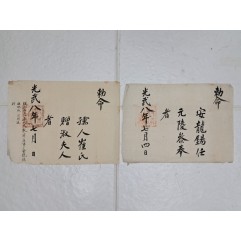 勅命
孺人崔氏
贈淑夫人
者
光武八年七月 日
勅命
安龍錫任
元陵參奉
者
光武八年七月四日